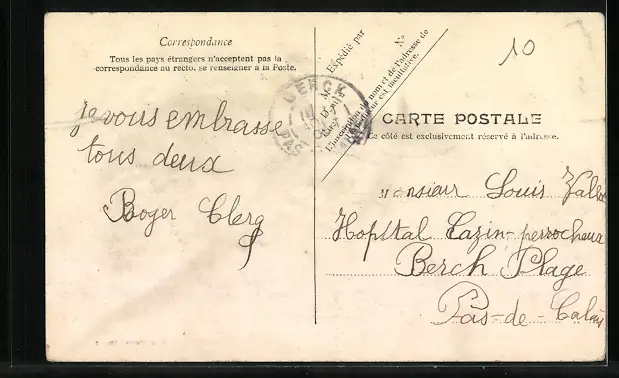 Correspondance
Tous les pays étrangers n'acceptent pas la
correspondance au recto. se renseigner à la Poste.
je vous embrasse
tous deux
Roger Clerg
Expédié par
N°
L'inscription du nom et de l'adresse de
l'expéditeur est facultative.
BERCK
10
CARTE POSTALE
Ce côté est exclusivement réservé à l'adresse.
Monsieur Louis
Hopital Cazin-perrocheux
Berck Plage
Pas-de-Calais